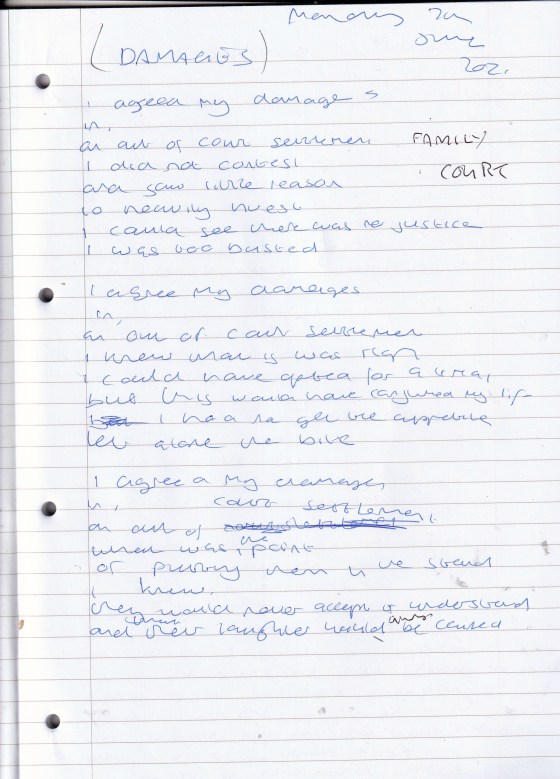 Monday 7th
June
202.
(DAMAGES)
I agreed my damages
in,
an out of court settlement FAMILY
I did not contest COURT
and saw little reason
to heavily invest
I could see there was no justice
I was too busted
I agree my damages
in,
an out of court settlement
I knew what is was
I could have opted for a trial,
but this would have my life
I had to get the appetite
let alone the bite
I agree a my damages
in, court settlement.
an out of
what was, the point
of putting them in the stand
I knew.
they would never accept or understand
and their laughter would be